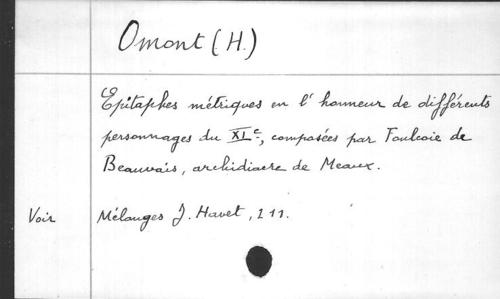 Omont (H.)
Epitaphes métriques en l'honneur de différents
personnages du XI e., composées par Foulcoie de
Beauvais, archidiacre de Meaux.
Voir Mélanges J. Havet, 211.